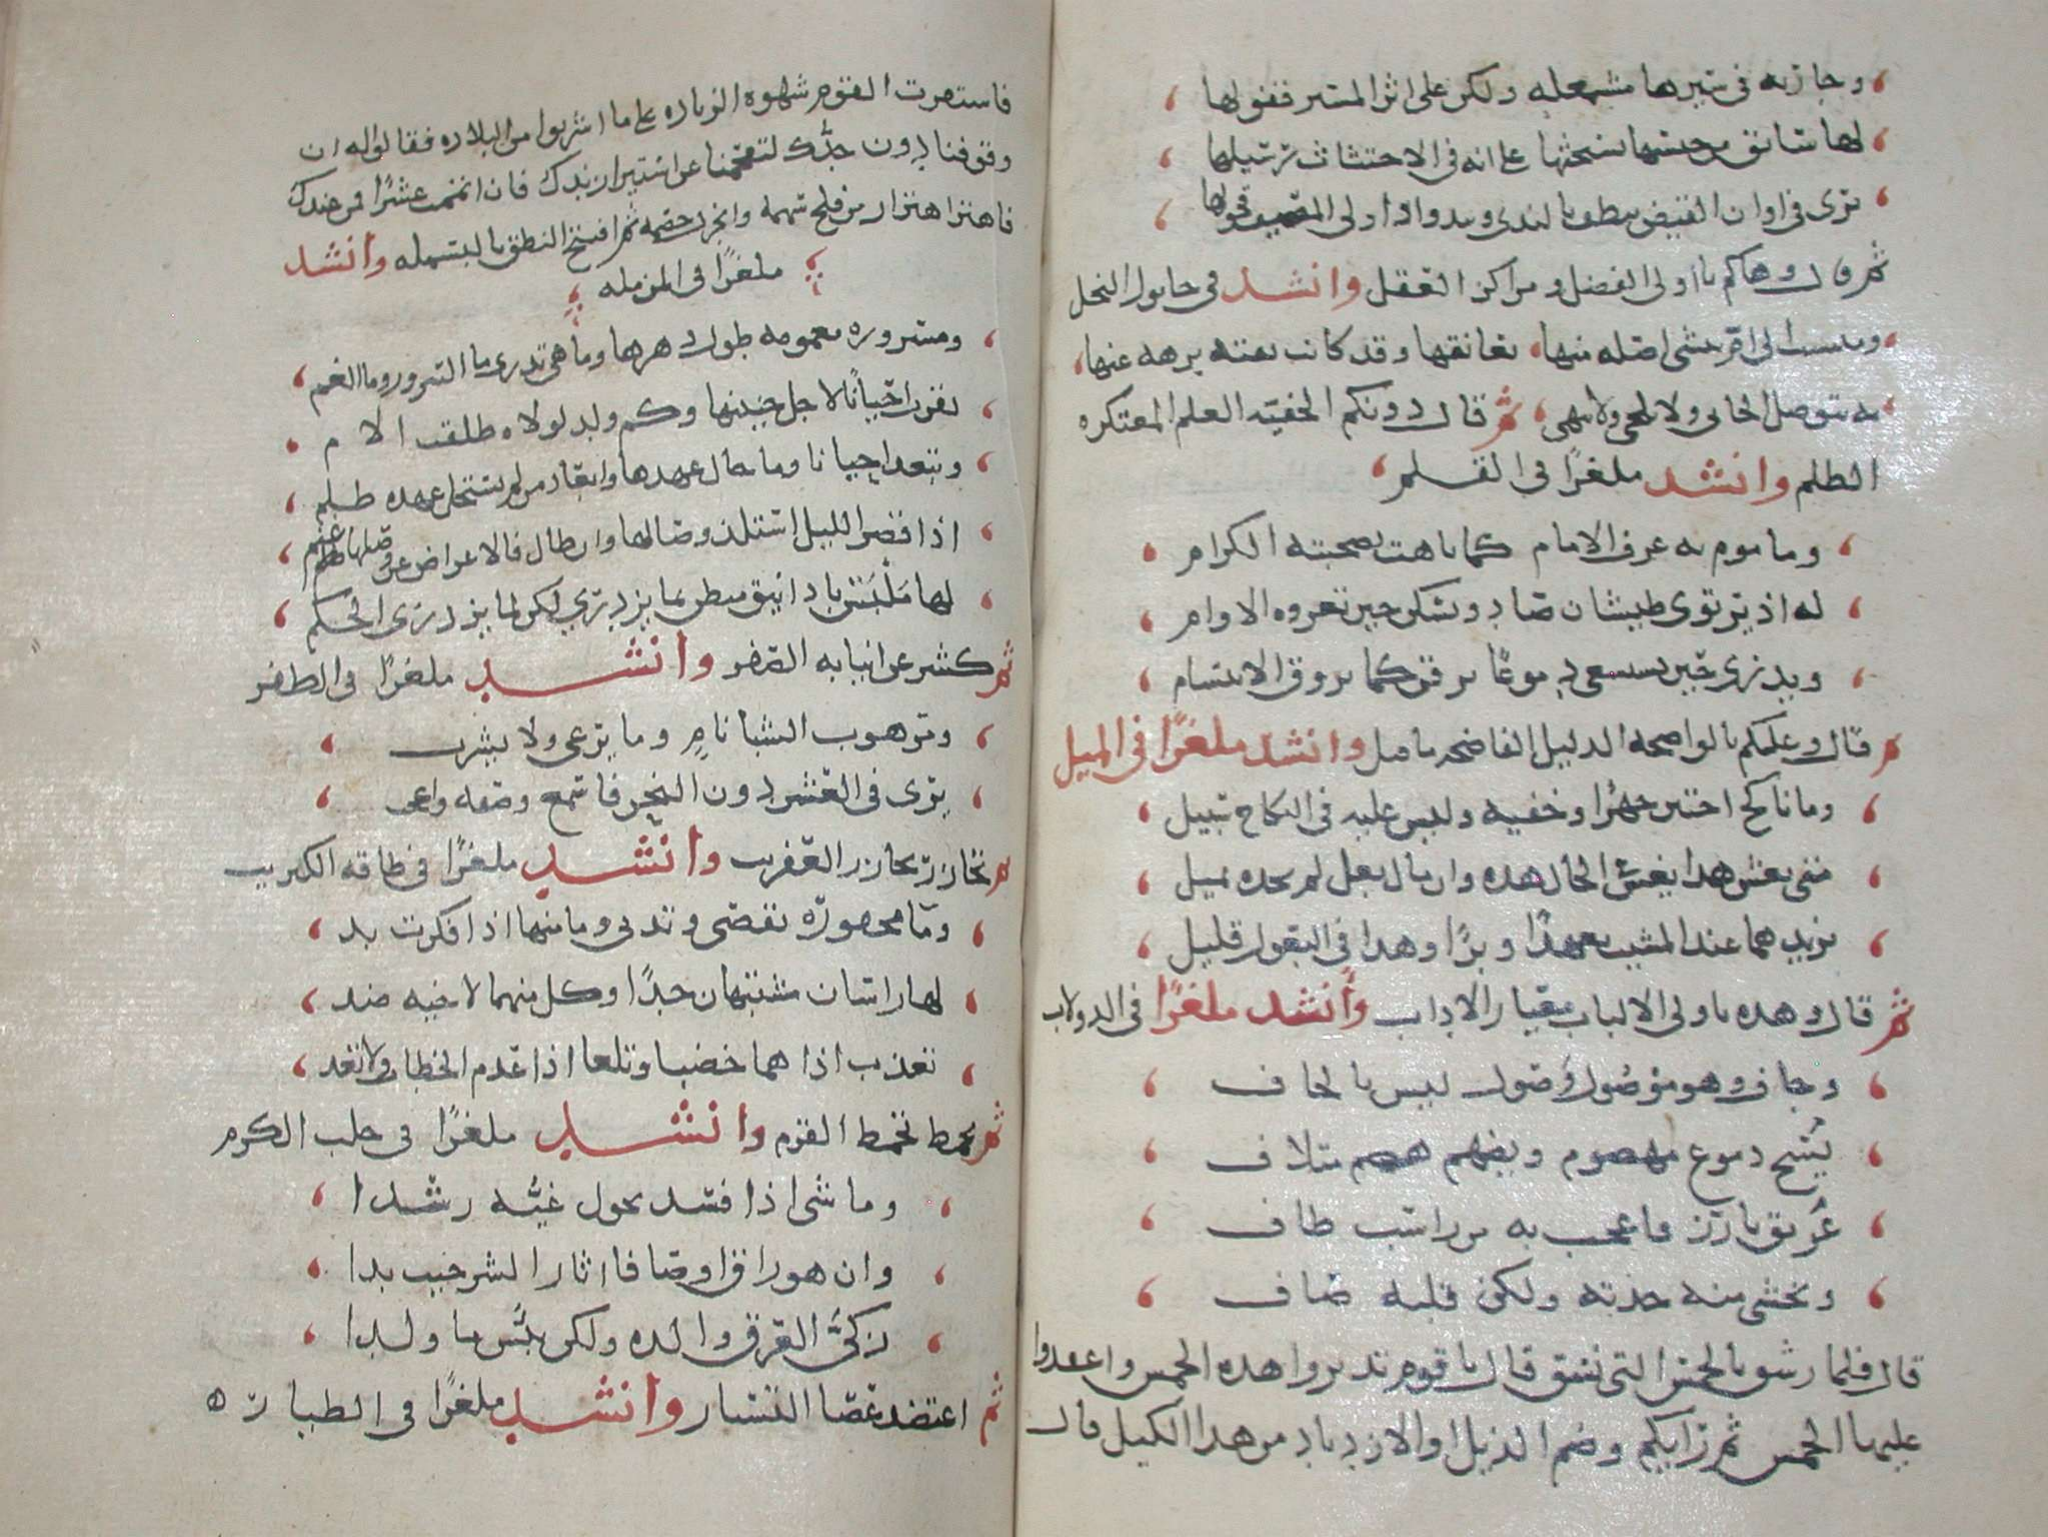 وجارية في سيرها مشمعلة ولكن على اثر المسير قفولها
لها سائق من جنسها يستحثها على انه في الاحتثاث رسيلها
ترى في اوان القيظ تنطف بالندى ويبدو اذا ولى المصيف قحولها
ثم قال وهاكم يا اولي الفضل ومراكز العقل وانشد في حابول النخل
ومنتسب الى ام تنشى اصله منها يعانقها وقد كانت نفته برهة عنها
به يتوصل الجاني ولا يلحى ولا ينهى ثم قال ودونكم الخفية العلم المعتكرة
الظلم وانشد ملغزا في القلم
وماموم به عرف الامام كما باهت بصحبته الكرام
له اذ يرتوي طيشان صاد ويسكن حين تعروه الاوام
ويذري حين يستسعى دموعا يرقن كما يروق الابتسام
ثم قال وعليكم بالواضحة الدليل الفاضحة ما قيل وانشد ملغزا في الميل
وما ناكح اختين جهرا وخفية وليس عليه في النكاح سبيل
متى يغش هذي يغش في الحال هذه وان مال بعل لم تجده يميل
يزيدهما عند المشيب تعهدا وبرا وهذا في البعول قليل
ثم قال وهذه يا اولي الالباب معيار الاداب وأنشد ملغزا في الدولاب
وجاف وهو موصول وصول ليس بالجاف
يسح دموع مهضوم ويهضم هضم متلاف
غريق بارز فاعجب به من راسب طاف
وتخشى منه حدته ولكن قلبه صاف
قال فلما رشق بالخمس التي نسق قال يا قوم تدبروا هذه الخمس واعقدوا
عليها الخمس ثم رايكم وضم الذيل او الازدياد من هذا الكيل قال
فاستفزت القوم شهوة الزيادة على ما اشربوا من البلادة فقالوا له ان
وقوفنا دون حدك ليفحمنا عن استيراء زندك فان اتممت عشرا فمن عندك
فاهتز اهتزاز من فلج سهمه وانخزل خصمه ثم افتتح النطق بالبسملة وانشد
ملغزا في المزملة
ومسرورة مغمومة طول دهرها وما هي تدري ما السرور وما الغم
تقرب احيانا لاجل جنينها وكم ولد لولاه طلقت الام
وتبعد احيانا وما حال عهدها وابعاد من لم يستحل عهده ظلم
اذا قصر الليل استلذ وصالها وان طال فالاعراض عن وصلها غنم
لها ملبس باد انيق مبطن بما يزدرى لكن لما يزدرى الحكم
ثم كشر عن انيابه الصفر وانشد ملغزا في الظفر
ومرهوب الشبا نام وما يرعى ولا يشرب
يرى في العشر دون النحر فاسمع وصفه واعجب
ثم تخازر تخازر العفريت وانشد ملغزا في طاقة الكبريت
وما محقورة تقصى وتدنى وما منها اذا فكرت بد
لها راسان مشتبهان جدا وكل منهما لاخيه ضد
تعذب اذا هما خضبا وتلغا اذا عدم الخضاب ولا تعد
ثم تخمط تخمط القرم وانشد ملغزا في حلب الكرم
وما شى اذا فسد تحول غيه رشدا
وان هو راق اوصافا اثار الشر حيث بدا
زكي العرق والده ولكن بئس ما ولدا
ثم اعتضد عصا التسيار وانشد ملغزا في الطيار